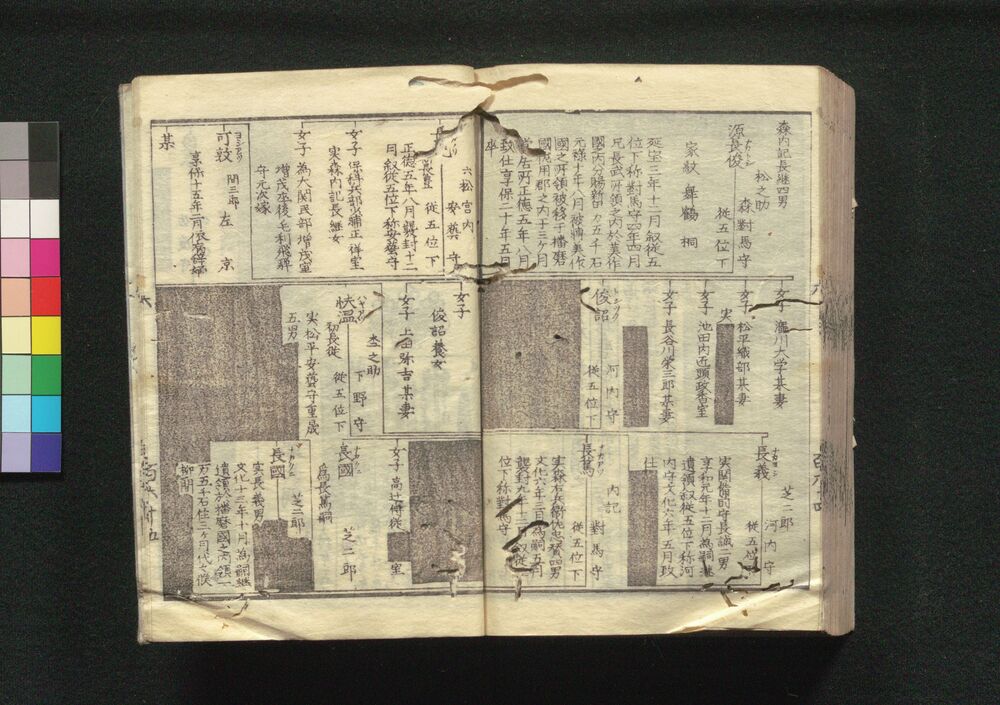 森内記長継四男
松之助
源長俊
ナカトシ
森對馬守
従五位下
家紋 舞鶴 桐
延宝三年十二月叙従五
位下称對馬守四年四月
兄長武所領之内於美作
國内分賜新田一万五千石
元禄十年八月被轉美作
國之所領被移于播磨
國佐用郡之内十三ケ月
為居所正徳五年八月
致仕享保二十年五月
卒
女子 瀧川大学某妻
女子 松平織部某妻
実
女子 池田内近頭政香室
女子 長谷川栄三郎某妻
俊詔
河内守
従五位下
長義
ナカヨシ
芝二郎
河内守
従五位
実関備前守長誠二男
享和元年十二月為嗣継
遺領叙従五位下称河
内守文化六年五月致
仕
長篤
ナカアツ
内記
對馬守
従五位下
実森右兵衛忠賛四男
文化六年三月為嗣五月
襲封九年十二月叙従五
位下称對馬守
六松 宮内
安藝守
従五位下
正徳五年八月襲封十二
月叙従五位下称安藝守
実森内記長継女
女子 保科兵部少輔正祥室
女子 為大関民部増茂室
増茂卒後毛利飛騨
守元次嫁
可敦
関三郎 左京
享保十五年二月依病辞嫡
某
女子
俊詔養女
女子 上田弥吉某妻
快温
ハヤアツ
杢之助
下野守
初長従 従五位下
実松平安藝守重晟
五男
女子 高辻侍従
室
長國
ナカクニ
芝二郎
為長篤嗣
長國
ナカクニ
芝二郎
実長義男
文化十三年十月為嗣継
遺領於播磨國之内領一
万五千石住三ケ月代々候
柳間